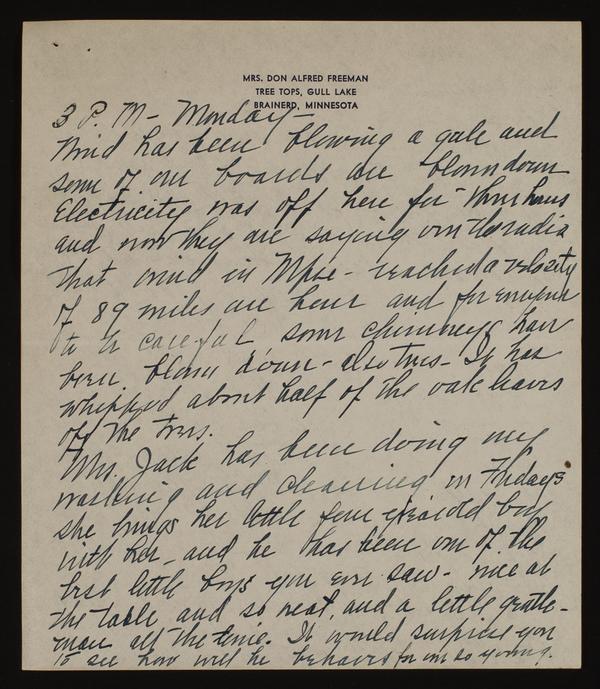 MRS. DON ALFRED FREEMAN
TREE TOPS, GULL LAKE
BRAINERD, MINNESOTA
3 P. M - Monday -
Wind has been blowing a gale and
some of our boards are blown down
Electricity was off here for three hours
and now they are saying over the radio
that wind in Mpls - reached a velocity
of 89 miles an hour and for everyone
to be careful some chimneys have
been blown down - also trees - It has
whipped about half of the oak leaves
off the trees.
Mrs. Jack has been doing my
washing and cleaning on Fridays
she brings her little four year old boy
with her - and he has been one of the
best little boys you ever saw - nice at
the table and so neat, and a little gentle-
man all the time. It would surprise you
to see how well he behaves for one so young.